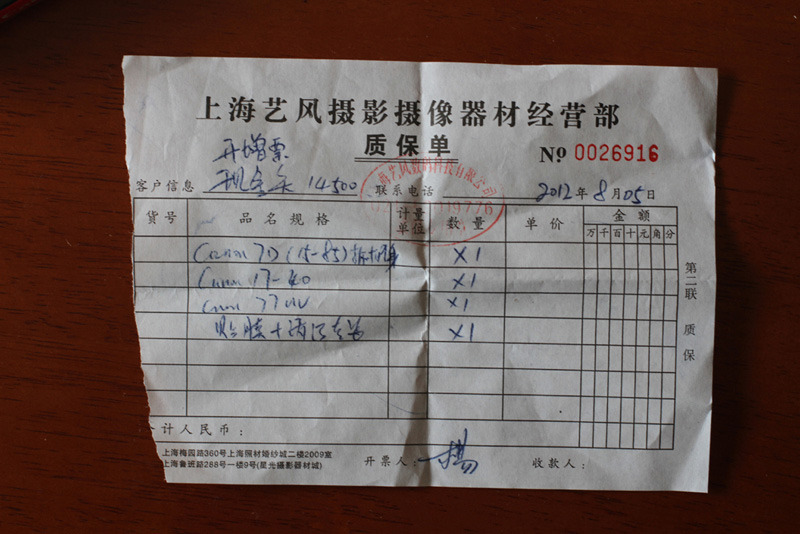 上海艺风摄影摄像器材经营部
质保单
开增票
№ 0026916
客户信息 现金客 14500 联系电话 2012年8月05日
货号 品名规格 计量单位 数量 单价 金额
万 千 百 十 元 角 分
Canon 7D (15-85) 拆机身 X1
Canon 17-40 X1
Canon 77UV X1
贴膜+清洁套装 X1
第二联 质保
合计人民币：
上海梅园路360号上海照材婚纱城二楼2009室
上海鲁班路288号一楼9号(星光摄影器材城)
开票人： 杨 收款人：